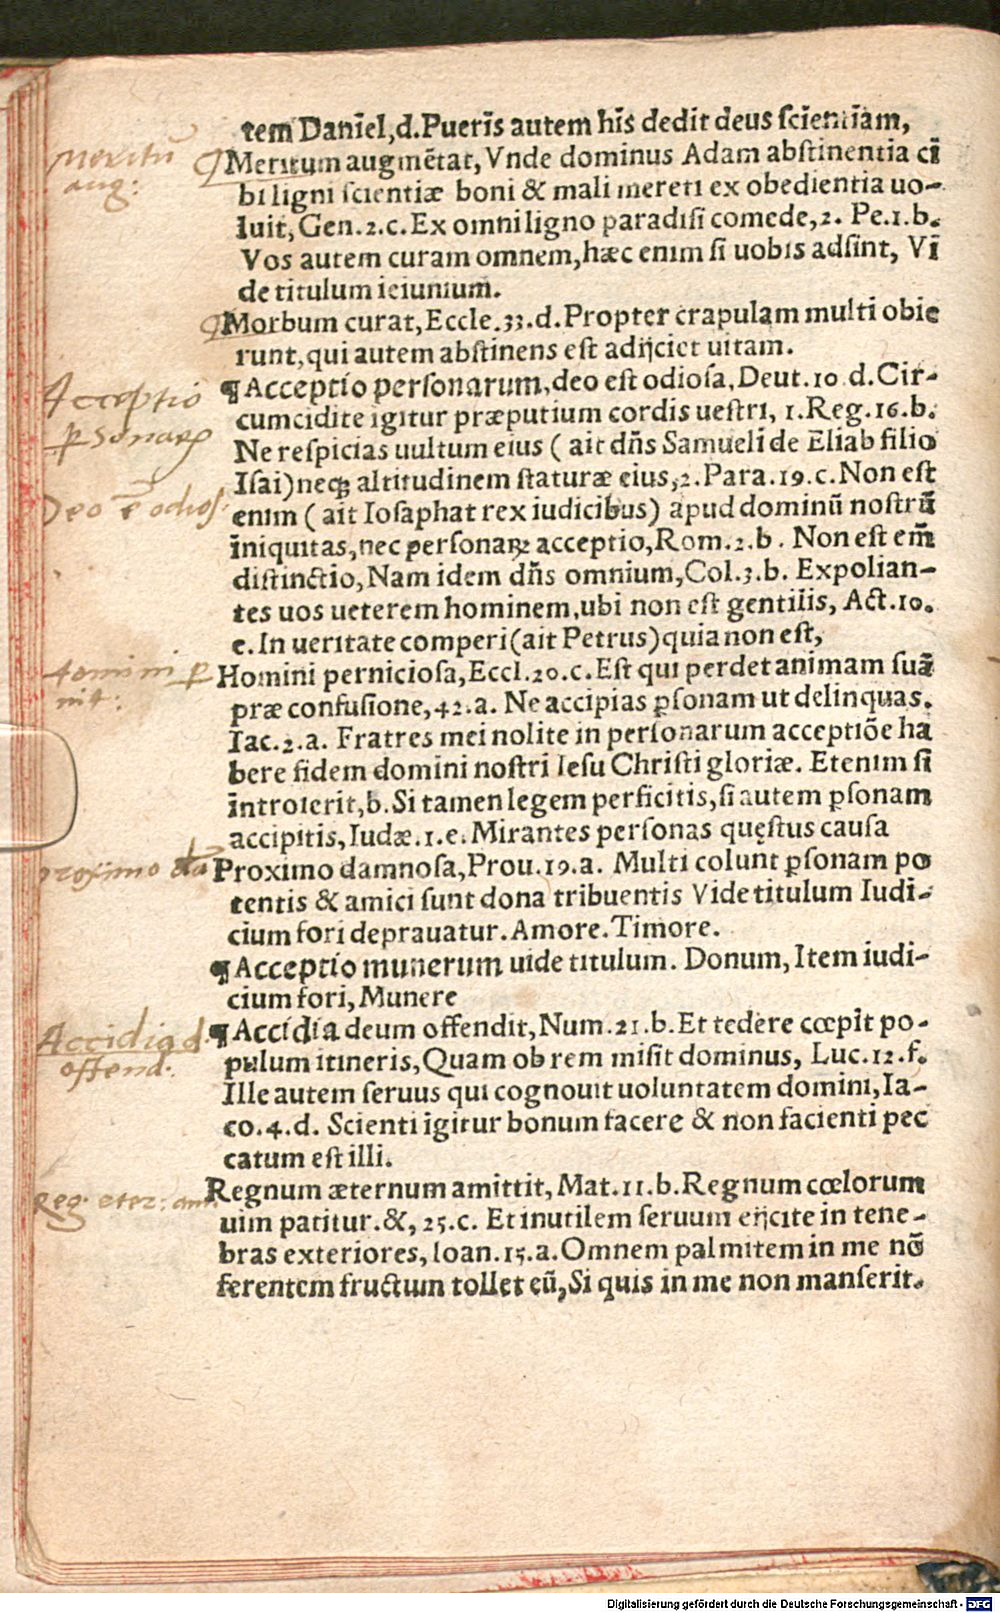 tem Daniel,d.Pueris autem his dedit deus scientiam,
Meritū aug:
Meritum augmētat, Vnde dominus Adam abstinentia ci
bi ligni scientiæ boni & mali mereri ex obedientia uo-
luit, Gen.2.c. Ex omni ligno paradisi comede,2. Pe.1.b.
Vos autem curam omnem,hæc enim si uobis adsint, Vi
de titulum ieiunium.
Morbum curat, Eccle.33.d.Propter crapulam multi obie
runt,qui autem abstinens est adijciet uitam.
Acceptio ꝑsonaꝝ
¶ Acceptio personarum,deo est odiosa,Deut.10 d.Cir-
cumcidite igitur præputium cordis uestri, 1.Reg.16.b.
Ne respicias uultum eius ( ait dn̄s Samueli de Eliab filio
Deo ē odios.
Isai)neqꝫ altitudinem staturæ eius,2.Para.19.c.Non est
enim ( ait Iosaphat rex iudicibus) apud dominū nostrū
iniquitas,nec personaꝝ acceptio,Rom.2.b. Non est em̄
distinctio,Nam idem dn̄s omnium,Col.3.b. Expolian-
tes uos ueterem hominem,ubi non est gentilis, Act.10.
e.In ueritate comperi(ait Petrus)quia non est,
Homini ꝑnit:
Homini perniciosa,Eccl.20.c.Est qui perdet animam suā
præ confusione,42.a. Ne accipias ꝑsonam ut delinquas.
Iac.2.a. Fratres mei nolite in personarum acceptiōe ha
bere fidem domini nostri Iesu Christi gloriæ. Etenim si
introierit,b.Si tamen legem perficitis,si autem ꝑsonam
accipitis,Iudæ.1.e.Mirantes personas quęstus causa
proximo
Proximo damnosa,Prou.19.a. Multi colunt ꝑsonam po
tentis & amici sunt dona tribuentis Vide titulum Iudi-
cium fori deprauatur.Amore.Timore.
¶ Acceptio munerum uide titulum. Donum,Item iudi-
cium fori, Munere
Accidia d. offend.
¶ Accidia deum offendit,Num.21.b.Et tedere cœpit po-
pulum itineris,Quam ob rem misit dominus, Luc.12.f.
Ille autem seruus qui cognouit uoluntatem domini,Ia-
co.4.d. Scienti igitur bonum facere & non facienti pec
catum est illi.
Reg. eter: am.
Regnum æternum amittit, Mat.11.b.Regnum cœlorum
uim patitur.&, 25.c. Et inutilem seruum eijcite in tene-
bras exteriores, Ioan.15.a.Omnem palmitem in me nō
ferentem fructum tollet eū,Si quis in me non manserit.
Digitalisierung gefördert durch die Deutsche Forschungsgemeinschaft - DFG